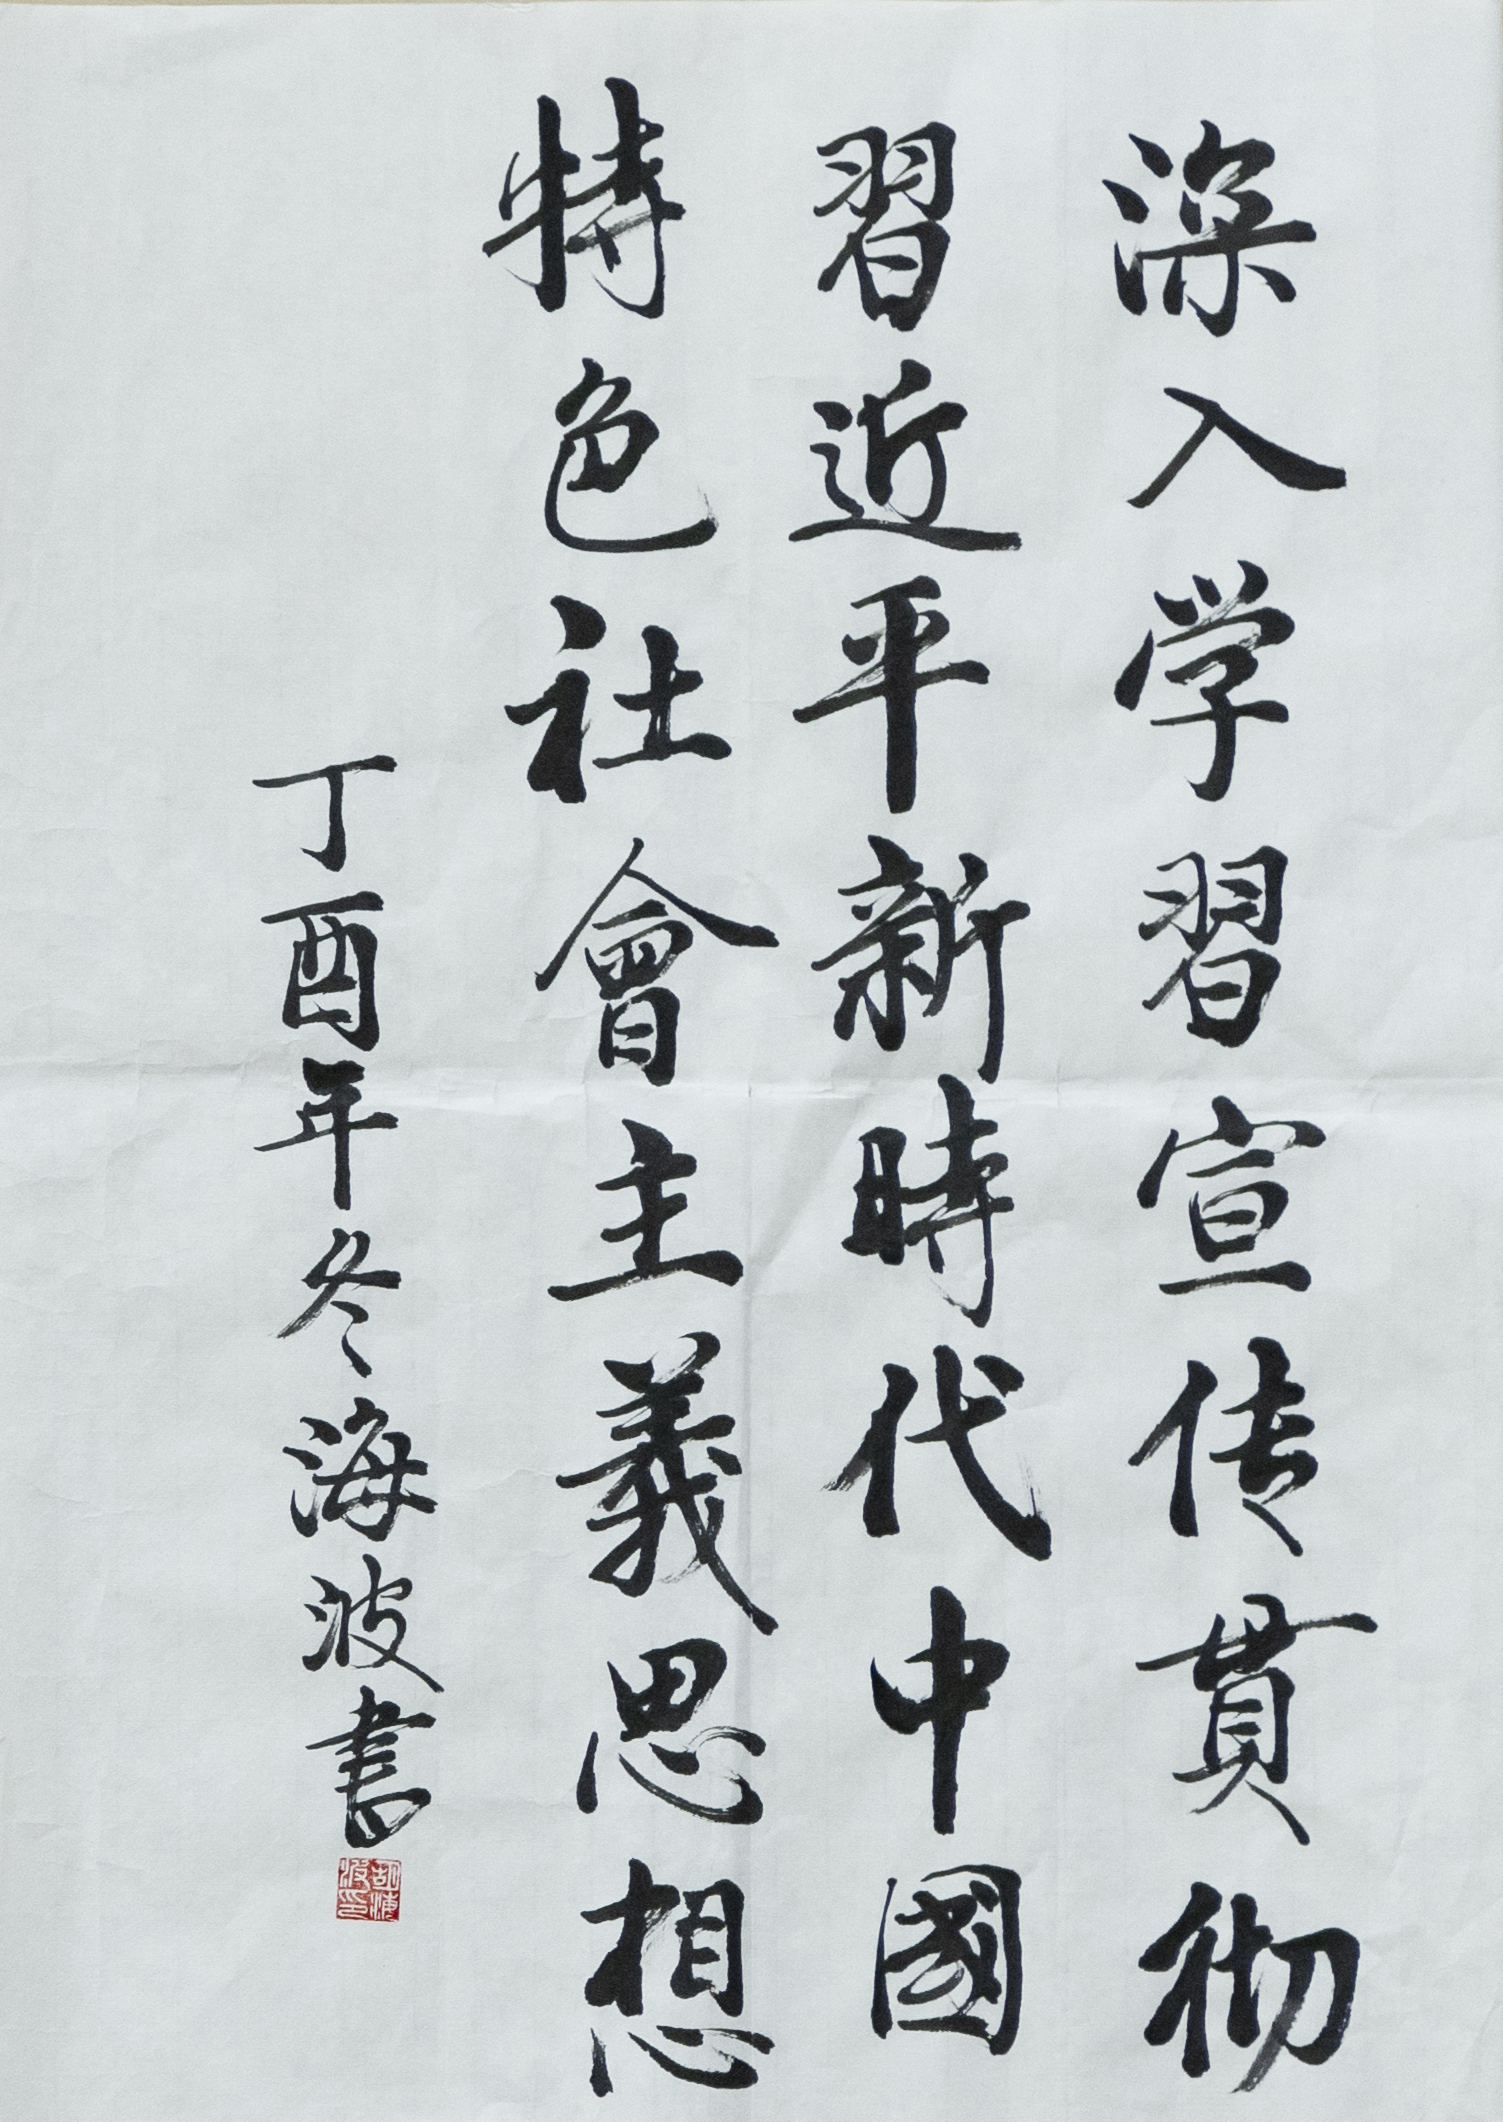 深入学習宣传贯彻
習近平新時代中國
特色社會主義思想
丁酉年冬海波書
胡海波印